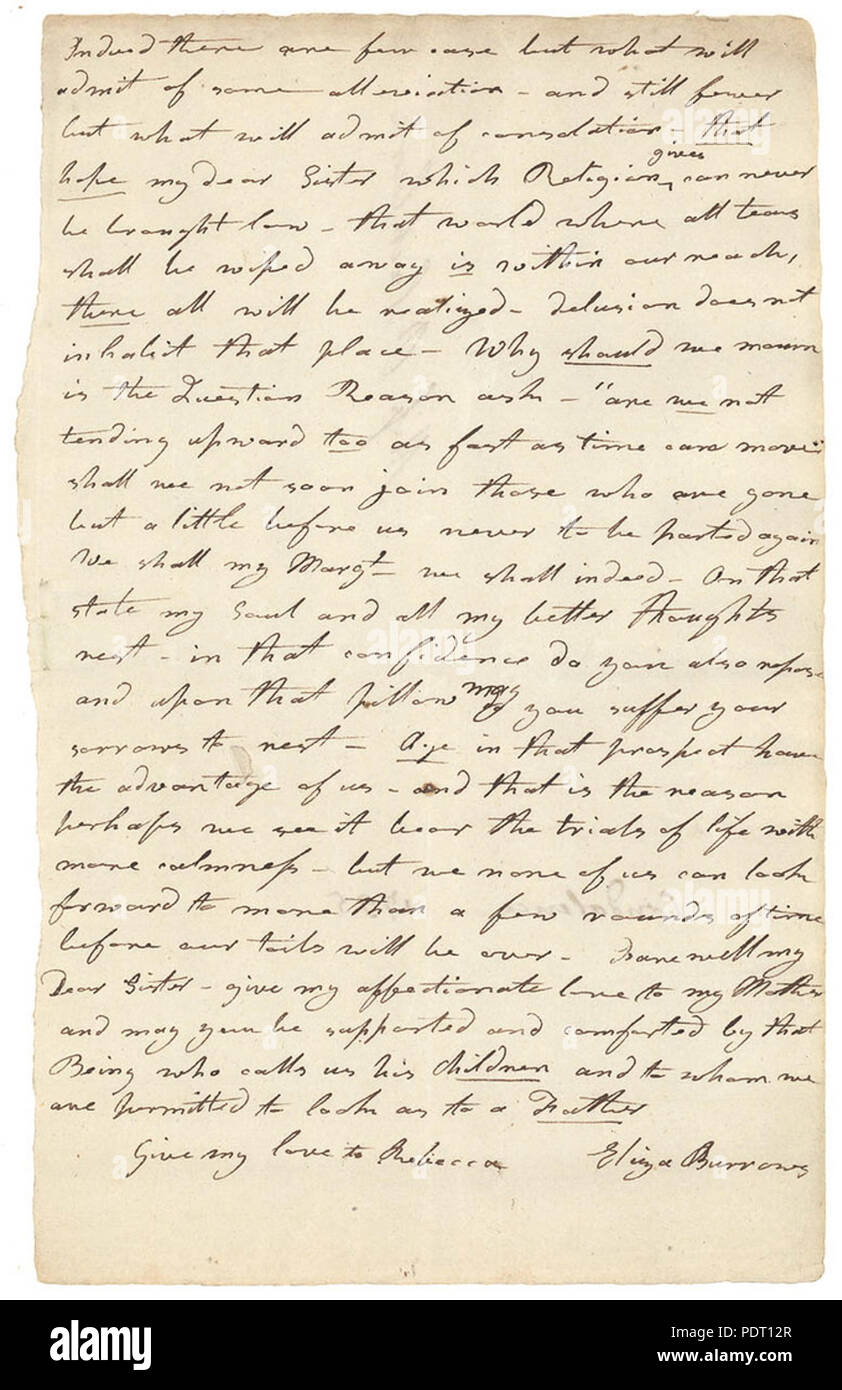 Indeed there are few case but what will
admit of some alleviation - and still fewer
but what will admit of consolation - that
gives
hope my dear Sister which Religion can never
be brought low - that world where all tears
shall be wiped away is within our reach,
there all will be realized - delusion does not
inhabit that place - Why should we mourn
is the Question Reason asks - "are we not
tending upward too as fast as time can move"
shall we not soon join those who are gone
but a little before us never to be parted again
We shall my Margt - we shall indeed - On that
state my Soul and all my better thoughts
rest - in that confidence do you also repose
and upon that pillow may you suffer your
sorrows to rest - Age in that prospect have
the advantage of us - and that is the reason
perhaps we see it bear the trials of life with
more calmness - but we none of us can look
forward to more than a few rounds of time
before our toils will be over - Farewell my
Dear Sister - give my affectionate love to my Mother
and may you be supported and comforted by that
Being who calls us his children and to whom we
are permitted to look as to a Father
Give my love to Rebecca Eliza Burrows
alamy
Image ID: PDT12R
www.alamy.com